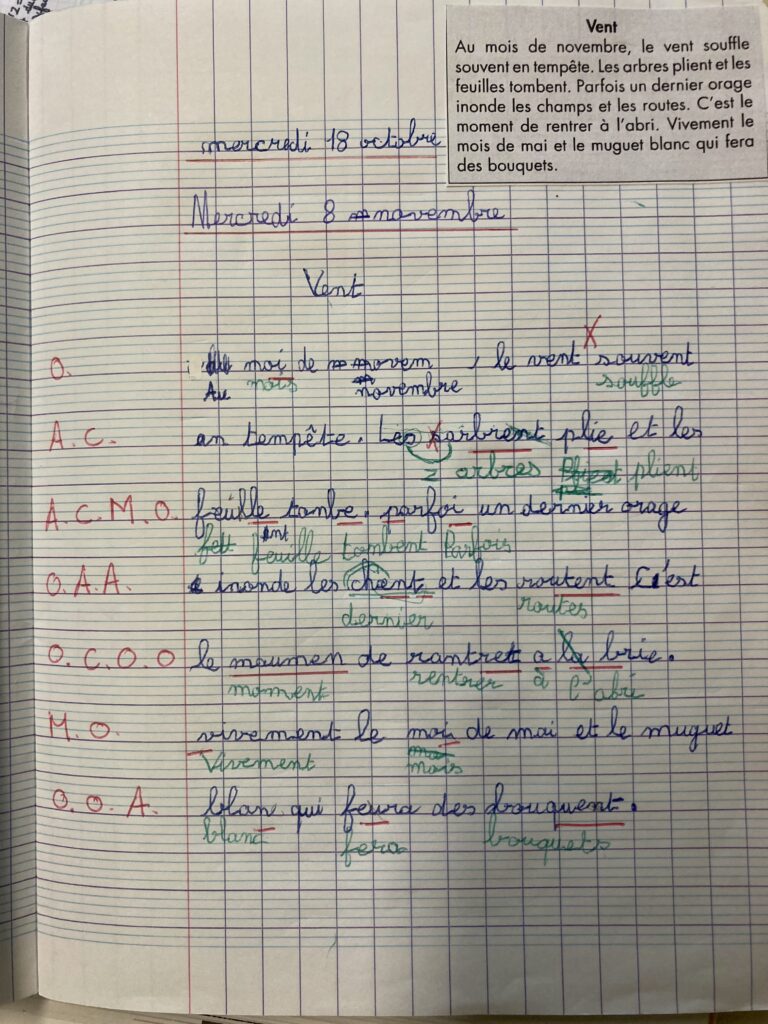 Vent
Au mois de novembre, le vent souffle
souvent en tempête. Les arbres plient et les
feuilles tombent. Parfois un dernier orage
inonde les champs et les routes. C'est le
moment de rentrer à l'abri. Vivement le
mois de mai et le muguet blanc qui fera
des bouquets.
mercredi 18 octobre
Mercredi 8 novembre
Vent
O. moi de novem , le vent souvent
Au mois novembre souffle
A.C. an tempête. Les arbrent plie et les
z arbres plient
A.C.M.O. feuille tanbe. parfoi un dernier orage
feuille tombent Parfois
O.A.A. inonde les chent et les routent C'est
dernier routes
O.C.O.O le maumen de rantret a la brie.
moment rentrer à l'abri
M.O. vivement le moi de mai et le muguet
Vivement mois
O.O.A. blan qui feura des bouquent.
blanc fera bouquets